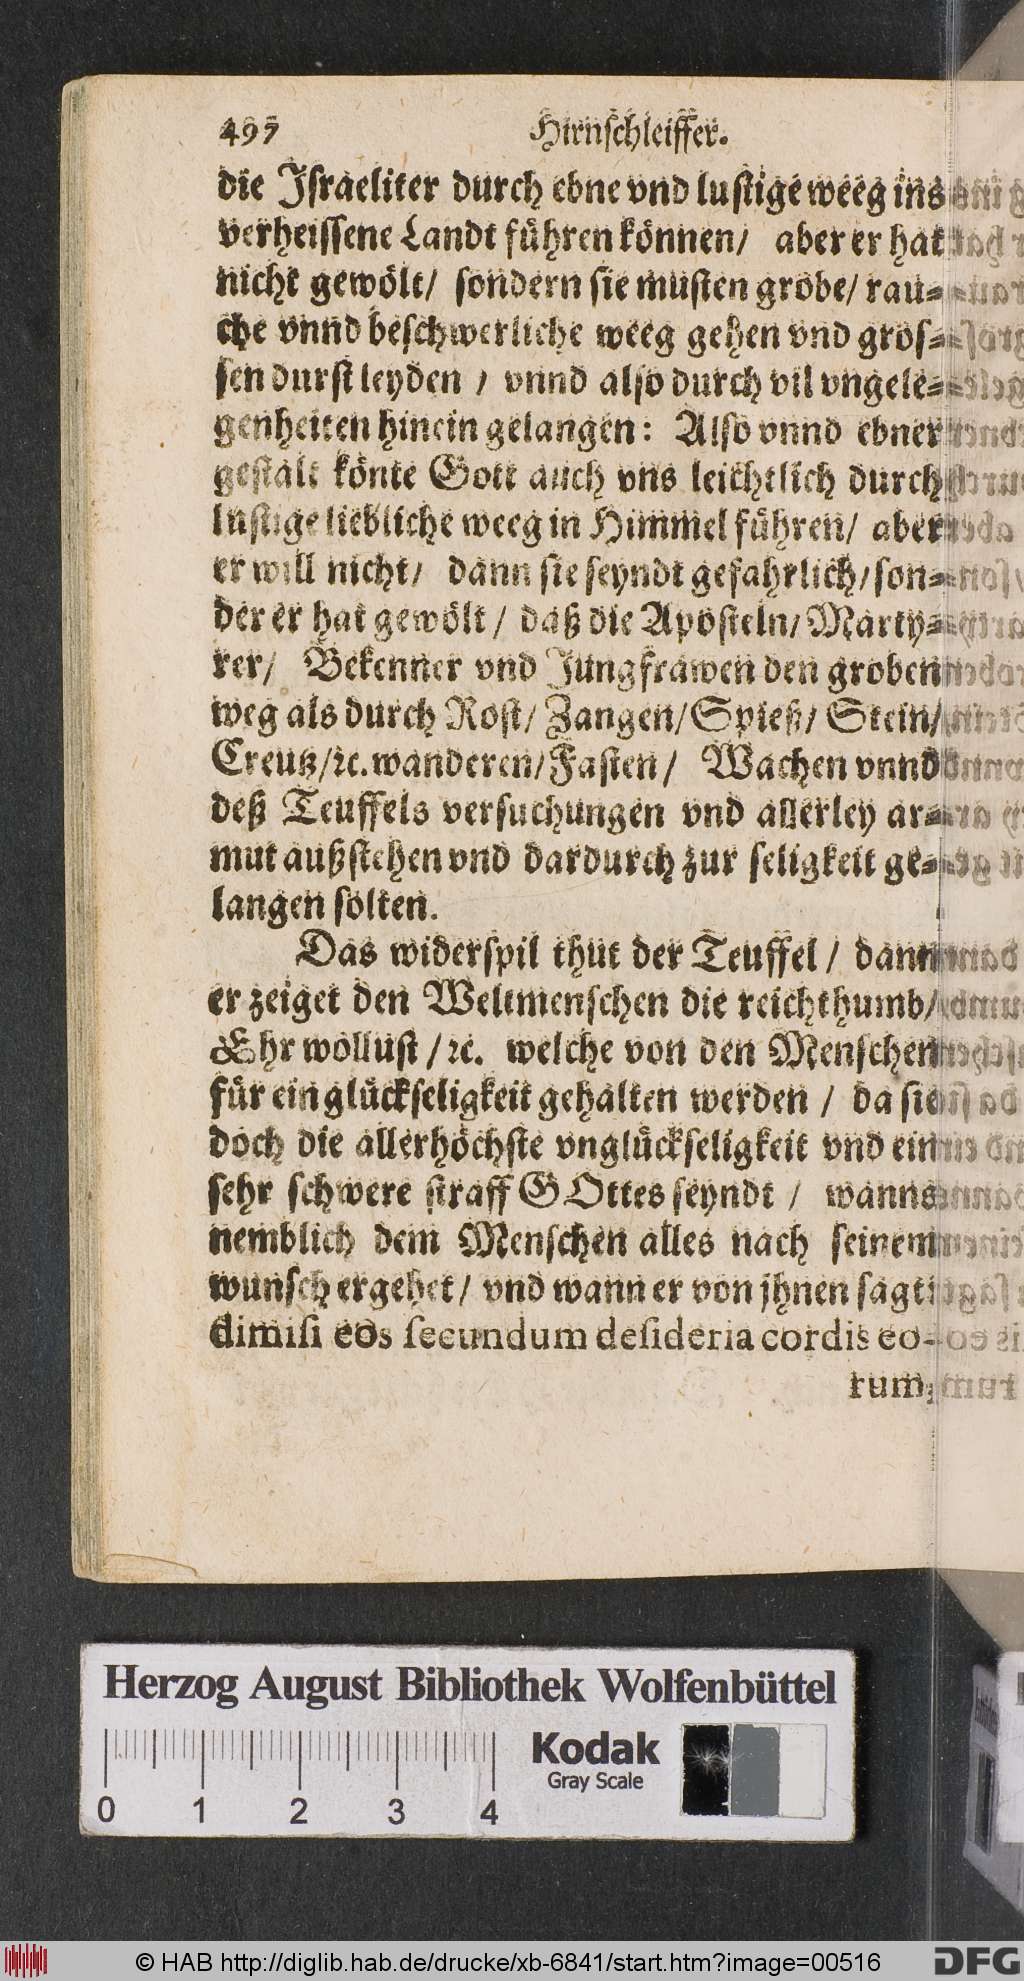 497 Hirnschleiffer.
die Israeliter durch ebne vnd lustige weeg ins
verheissene Landt führen können/ aber er hat
nicht gewölt/ sondern sie musten grobe/ rau⸗
che vnnd beschwerliche weeg gehen vnd gros⸗
sen durst leyden / vnnd also durch vil vngele⸗
genheiten hinein gelangen: Also vnnd ebner
gestalt könte Gott auch vns leichtlich durch
lustige liebliche weeg in Himmel führen/ aber
er will nicht/ dann sie seyndt gefährlich/ son⸗
der er hat gewölt / daß die Aposteln/ Marty⸗
rer/ Bekenner vnd Jungfrawen den groben
weg als durch Rost/ Zangen/ Spieß/ Stein/
Creutz/ ꝛc. wanderen/ Fasten/ Wachen vnnd
deß Teuffels versuchungen vnd allerley ar⸗
mut außstehen vnd dardurch zur seligkeit ge⸗
langen solten.
Das widerspil thut der Teuffel / dann
er zeiget den Weltmenschen die reichthumb/
Ehr wollust / ꝛc. welche von den Menschen
für ein glückseligkeit gehalten werden / da sie
doch die allerhöchste vnglückseligkeit vnd ein
sehr schwere straff GOttes seyndt / wanns
nemblich dem Menschen alles nach seinem
wunsch ergehet/ vnd wann er von jhnen sagt:
dimisi eos secundum desideria cordis eo-
rum,
Herzog August Bibliothek Wolfenbüttel
Kodak
Gray Scale
0 1 2 3 4
© HAB http://diglib.hab.de/drucke/xb-6841/start.htm?image=00516
DFG